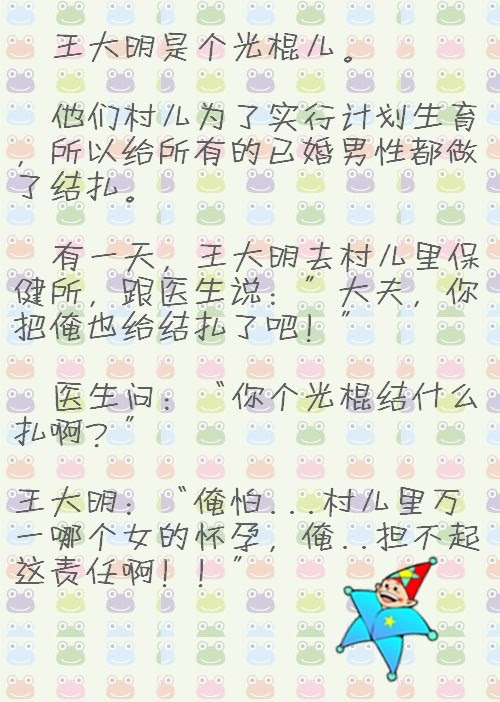 王大明是个光棍儿。
他们村儿为了实行计划生育
，所以给所有的已婚男性都做
了结扎。
有一天，王大明去村儿里保
健所，跟医生说：＂大夫，你
把俺也给结扎了吧！＂
医生问：＂你个光棍结什么
扎啊？＂
王大明：＂俺怕...村儿里万
一哪个女的怀孕，俺..担不起
这责任啊！！＂